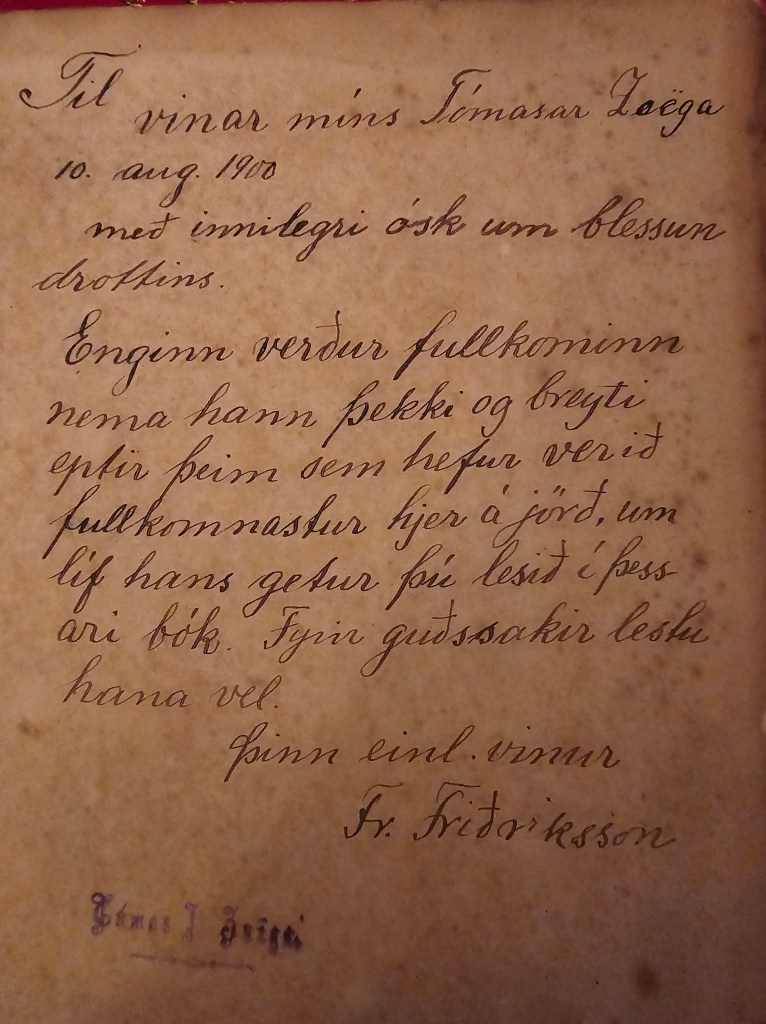 Til vinar míns Tómasar Zoëga
10. aug. 1900
með innilegri ósk um blessun
drottins.
Enginn verður fullkominn
nema hann þekki og breyti
eptir þeim sem hefur verið
fullkomnastur hjer á jörð, um
líf hans getur þú lesið í þess
ari bók. Fyrir guðssakir lestu
hana vel.
Þinn einl. vinur
Fr. Friðriksson
Tómas J. Zoëga